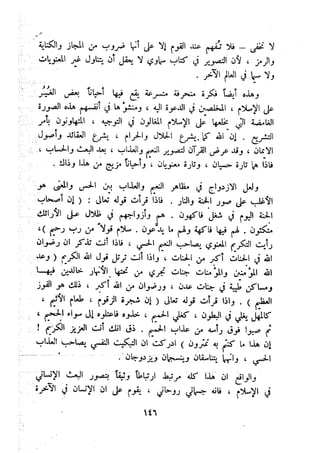 لا تخفى – فلا تُفهم عند القوم إلا على أنها ضروب من المجاز والكناية
والرمز ، لأن التصوير في كتاب سماوي لا يعقل أن يتناول غير المعنويات
ولا سيما في العالم الآخر .
وهذه أيضاً فكرة منحرفة متسرعة يقع فيها أحياناً بعض الغُيُر
على الإسلام ، المخلصين في الدعوة اليه ، ومنشؤها في أنفسهم هذه الصورة
الغامضة التي يخلعها على الإسلام المغالون في التوجيه ، المتهاونون بأمر
التشريع . إن الله كما يشرع الحلال والحرام ، يشرع العقائد وأصول
الايمان ، وقد عرض القرآن لتصوير النعيم والعذاب ، بعد البعث والحساب ،
فاذا هما تارة حسيان ، وتارة معنويان ، وأحياناً مزيج من هذا وذاك .
ولعل الازدواج في مظاهر النعيم والعذاب بين الحس والمعنى هو
الأغلب على صور الجنة والنار . فاذا قرأت قوله تعالى : ( إن أصحاب
الجنة اليوم في شغل فاكهون . هم وأزواجهم في ظلال على الأرائك
متكئون . لهم فيها فاكهة ولهم ما يدّعون . سلام قولاً من رب رحيم )،
رأيت التكريم المعنوي يصاحب النعيم الحسي ، فاذا أنت تذكر ان رضوان
الله في الجنات أكبر من الجنات ، واذا أنت ترتل قول الله الكريم ( وعد
الله المؤمنين والمؤمنات جنات تجري من تحتها الأنهار خالدين فيهــا
ومساكن طيبة في جنات عدن ، ورضوان من الله أكبر ، ذلك هو الفوز
العظيم ) . واذا قرأت قوله تعالى ( إن شجرة الزقوم ، طعام الأثيم ،
كالمهل يغلي في البطون ، كغلي الحميم ، خذوه فاعتلوه إلى سواء الجحيم ،
ثم صبوا فوق رأسه من عذاب الحميم . ذق انك أنت العزيز الكريم !
إن هذا ما كنتم به تمترون ) ادركت ان التبكيت النفسي يصاحب العذاب
الحسي ، وانهما يتناسقان وينسجمان ويزدوجان .
والواقع ان هذا كله مرتبط ارتباطاً وثيقاً بتصور البعث الإنساني
في الإسلام ، فانه جسماني روحاني ، يقوم على ان الإنسان في الآخرة
١٤٦